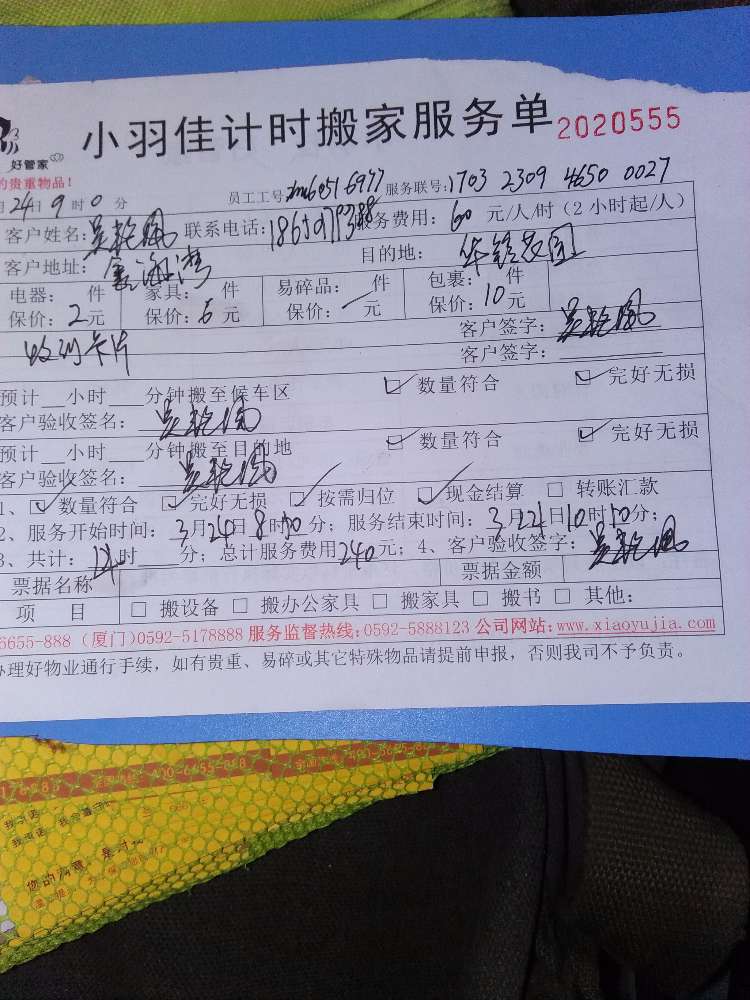 小羽佳计时搬家服务单 2020555
好管家
的贵重物品！
月24日9时0分 员工工号: 服务联号:1703 2309 4650 0027
客户姓名: 联系电话: 服务费用: 60 元/人/时（2小时起/人）
客户地址: 海湾 目的地:
电器: 件 家具: 件 易碎品: 件 包裹: 件
保价: 2元 保价: 6元 保价: 一 元 保价: 10元
收到卡片 客户签字:
客户签字:
预计 小时 分钟搬至候车区 ☑ 数量符合 ☑ 完好无损
客户验收签名:
预计 小时 分钟搬至目的地 ☑ 数量符合 ☑ 完好无损
客户验收签名:
1、☑ 数量符合 ☑ 完好无损 ☑ 按需归位 ☑ 现金结算 □ 转账汇款
2、服务开始时间: 3月24日8时 分；服务结束时间: 3月24日10时 分；
3、共计: 时 分；总计服务费用240元；4、客户验收签字:
票据名称 票据金额
项 目 □ 搬设备 □ 搬办公家具 □ 搬家具 □ 搬书 □ 其他:
6655-888 (厦门)0592-5178888 服务监督热线:0592-5888123 公司网站:www.xiaoyujia.com
办理好物业通行手续，如有贵重、易碎或其它特殊物品请提前申报，否则我司不予负责。
您的满意，是